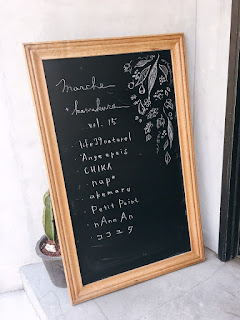 marche
+ kamakura
vol. 15
・life39naturel
・Ange epais
・CHIKA
・napo
・akamaru
・Petit Point
・nAnnAn
・ココユタ